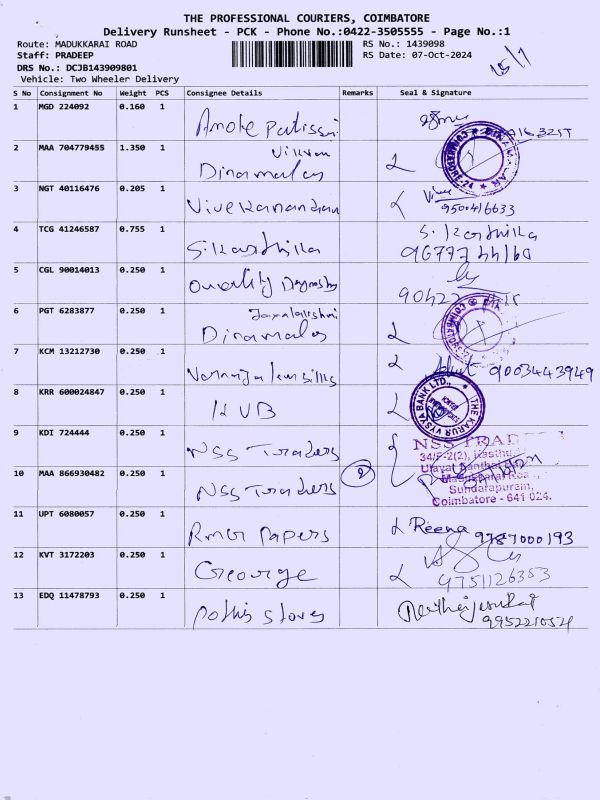 THE PROFESSIONAL COURIERS, COIMBATORE
Delivery Runsheet - PCK - Phone No.:0422-3505555 - Page No.:1
Route: MADUKKARAI ROAD
Staff: PRADEEP
DRS No.: DCJB143909801
Vehicle: Two Wheeler Delivery
RS No.: 1439098
RS Date: 07-Oct-2024
15/1
S No Consignment No Weight PCS Consignee Details Remarks Seal & Signature
1 MGD 224092 0.160 1
2 MAA 704779455 1.350 1 Dinamalar
3 NGT 40116476 0.205 1 Vivekanandan
9500416633
4 TCG 41246587 0.755 1 S. Karthika S. Karthika
5 CGL 90014013 0.250 1 Quality
6 PGT 6283877 0.250 1 Dinamalar
7 KCM 13212730 0.250 1 9003443949
8 KRR 600024847 0.250 1 KVB THE KARUR VYSYA BANK LTD.,
9 KDI 724444 0.250 1 NSS Traders NSS TRAD
34/F-2(2),
10 MAA 866930482 0.250 1 NSS Traders 2
Sundarapuram,
Coimbatore - 641 024.
11 UPT 6080057 0.250 1 RMGR Papers Reena 9787000193
12 KVT 3172203 0.250 1 George
9751126353
13 EDQ 11478793 0.250 1 Pothis Stores
9952210521